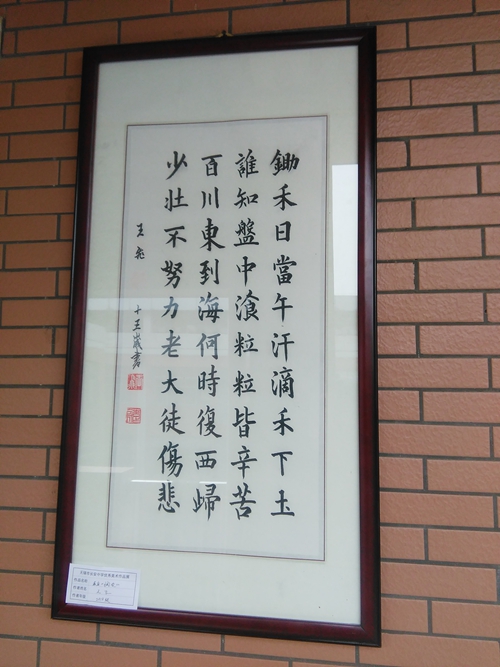 鋤禾日當午汗滴禾下土
誰知盤中湌粒粒皆辛苦
百川東到海何時復西歸
少壯不努力老大徒傷悲
十三歲書